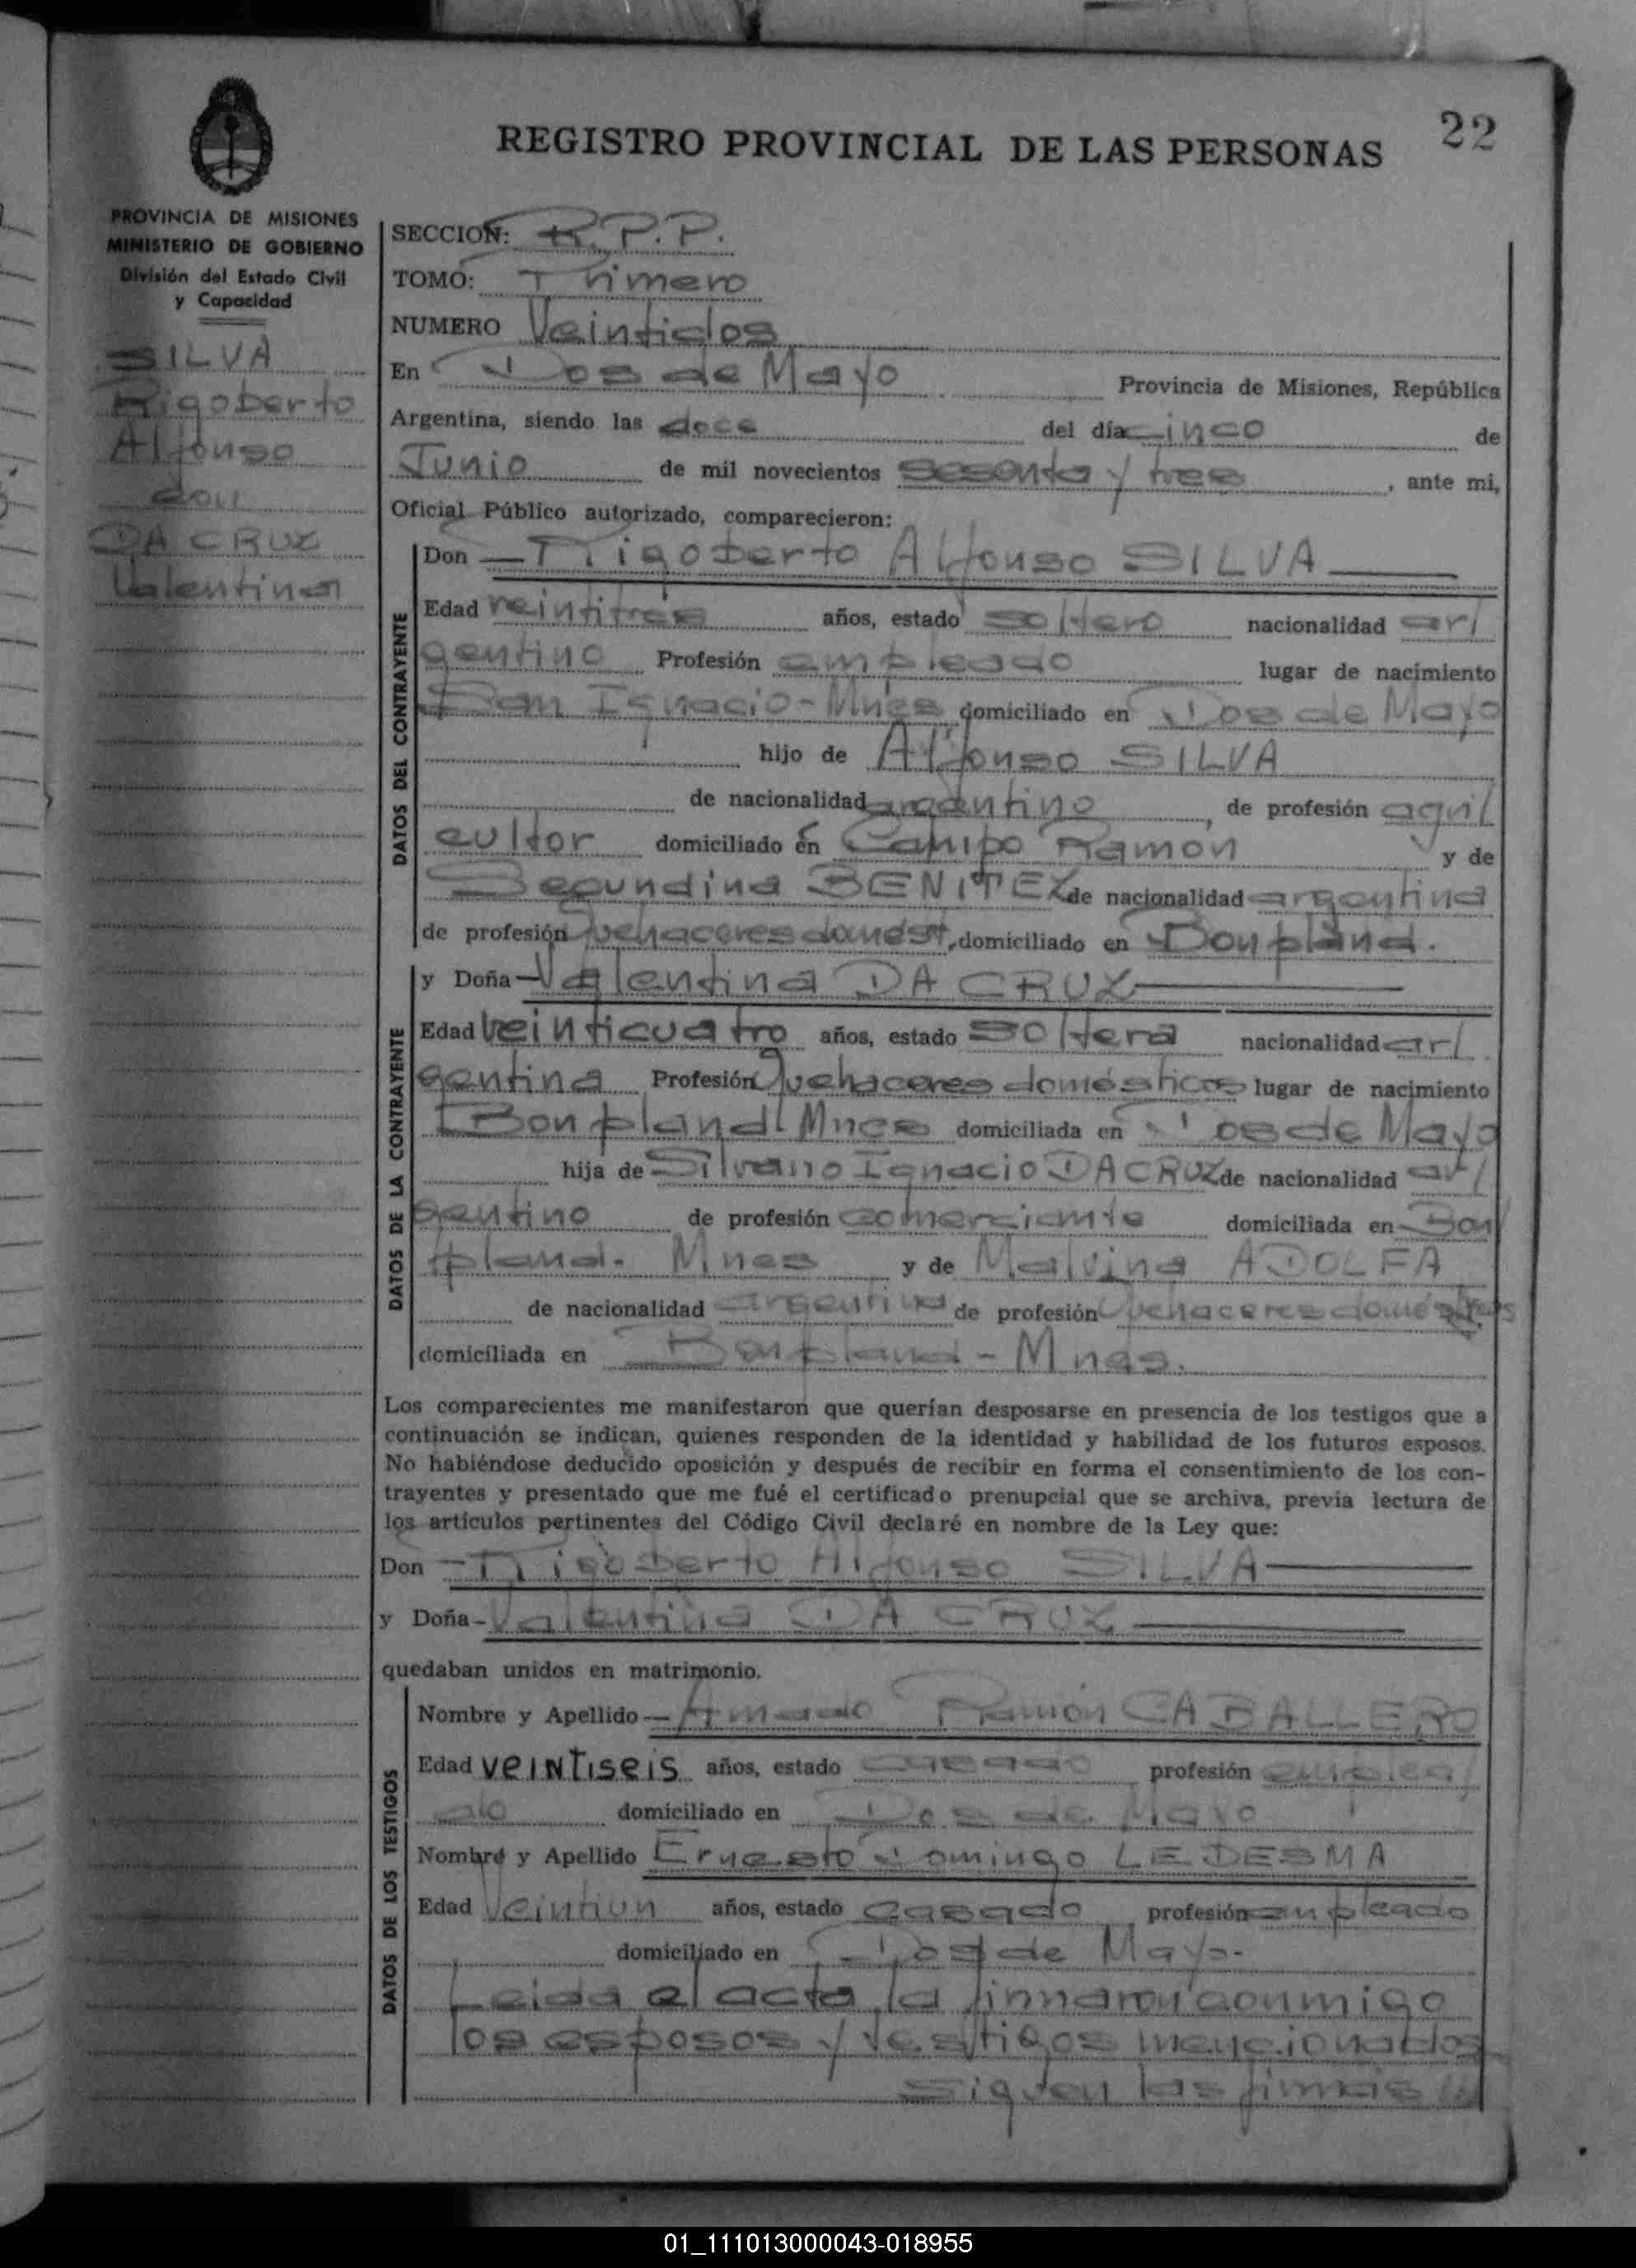 22
REGISTRO PROVINCIAL DE LAS PERSONAS
PROVINCIA DE MISIONES
MINISTERIO DE GOBIERNO
División del Estado Civil
y Capacidad
SILVA
Rigoberto
Alfonso
con
DA CRUZ
Valentina
SECCION: R.P.P.
TOMO: Primero
NUMERO Veintidos
En Dos de Mayo Provincia de Misiones, República
Argentina, siendo las doce del día cinco de
Junio de mil novecientos sesenta y tres, ante mi,
Oficial Público autorizado, comparecieron:
DATOS DEL CONTRAYENTE
Don Rigoberto Alfonso SILVA
Edad veintitres años, estado soltero nacionalidad ar/
gentino Profesión empleado lugar de nacimiento
San Ignacio - Mnes domiciliado en Dos de Mayo
hijo de Alfonso SILVA
de nacionalidad argentino, de profesión agri/
cultor domiciliado en Campo Ramon y de
Segundina BENITEZ de nacionalidad argentina
de profesión quehaceres domést, domiciliado en Bonpland.
DATOS DE LA CONTRAYENTE
y Doña Valentina DA CRUZ
Edad veinticuatro años, estado soltera nacionalidad ar/
gentina Profesión Quehaceres domésticos lugar de nacimiento
Bonpland Mnes domiciliada en Dos de Mayo
hija de Silvano Ignacio DA CRUZ de nacionalidad ar/
gentino de profesión comerciante domiciliada en Bon/
pland. Mnes y de Malvina ADOLFA
de nacionalidad argentina de profesión Quehaceres domésticos
domiciliada en Bonpland - Mnes.
Los comparecientes me manifestaron que querían desposarse en presencia de los testigos que a
continuación se indican, quienes responden de la identidad y habilidad de los futuros esposos.
No habiéndose deducido oposición y después de recibir en forma el consentimiento de los con-
trayentes y presentado que me fué el certificado prenupcial que se archiva, previa lectura de
los artículos pertinentes del Código Civil declaré en nombre de la Ley que:
Don Rigoberto Alfonso SILVA
y Doña Valentina DA CRUZ
quedaban unidos en matrimonio.
DATOS DE LOS TESTIGOS
Nombre y Apellido Armando Ramón CABALLERO
Edad veintiseis años, estado casado profesión emplea/
do domiciliado en Dos de Mayo
Nombre y Apellido Ernesto Domingo LEDESMA
Edad Veintiun años, estado casado profesión empleado
domiciliado en Dos de Mayo.
Leida el acta, la firmaron conmigo
los esposos y testigos mencionados
Siguen las firmas
01_111013000043-018955